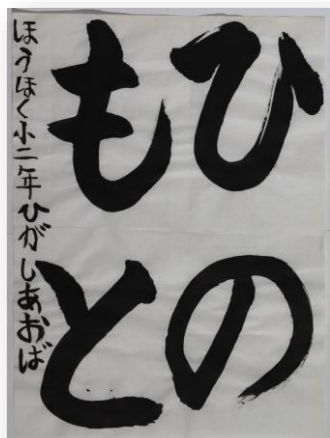 ひの
もと
ほうほく小二年ひがしあおば